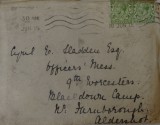 Cyril E. Sladden Esq
Officers' Mess.
9th Worcesters.
Blackdown Camp.
Nr. Farnborough.
Aldershot.